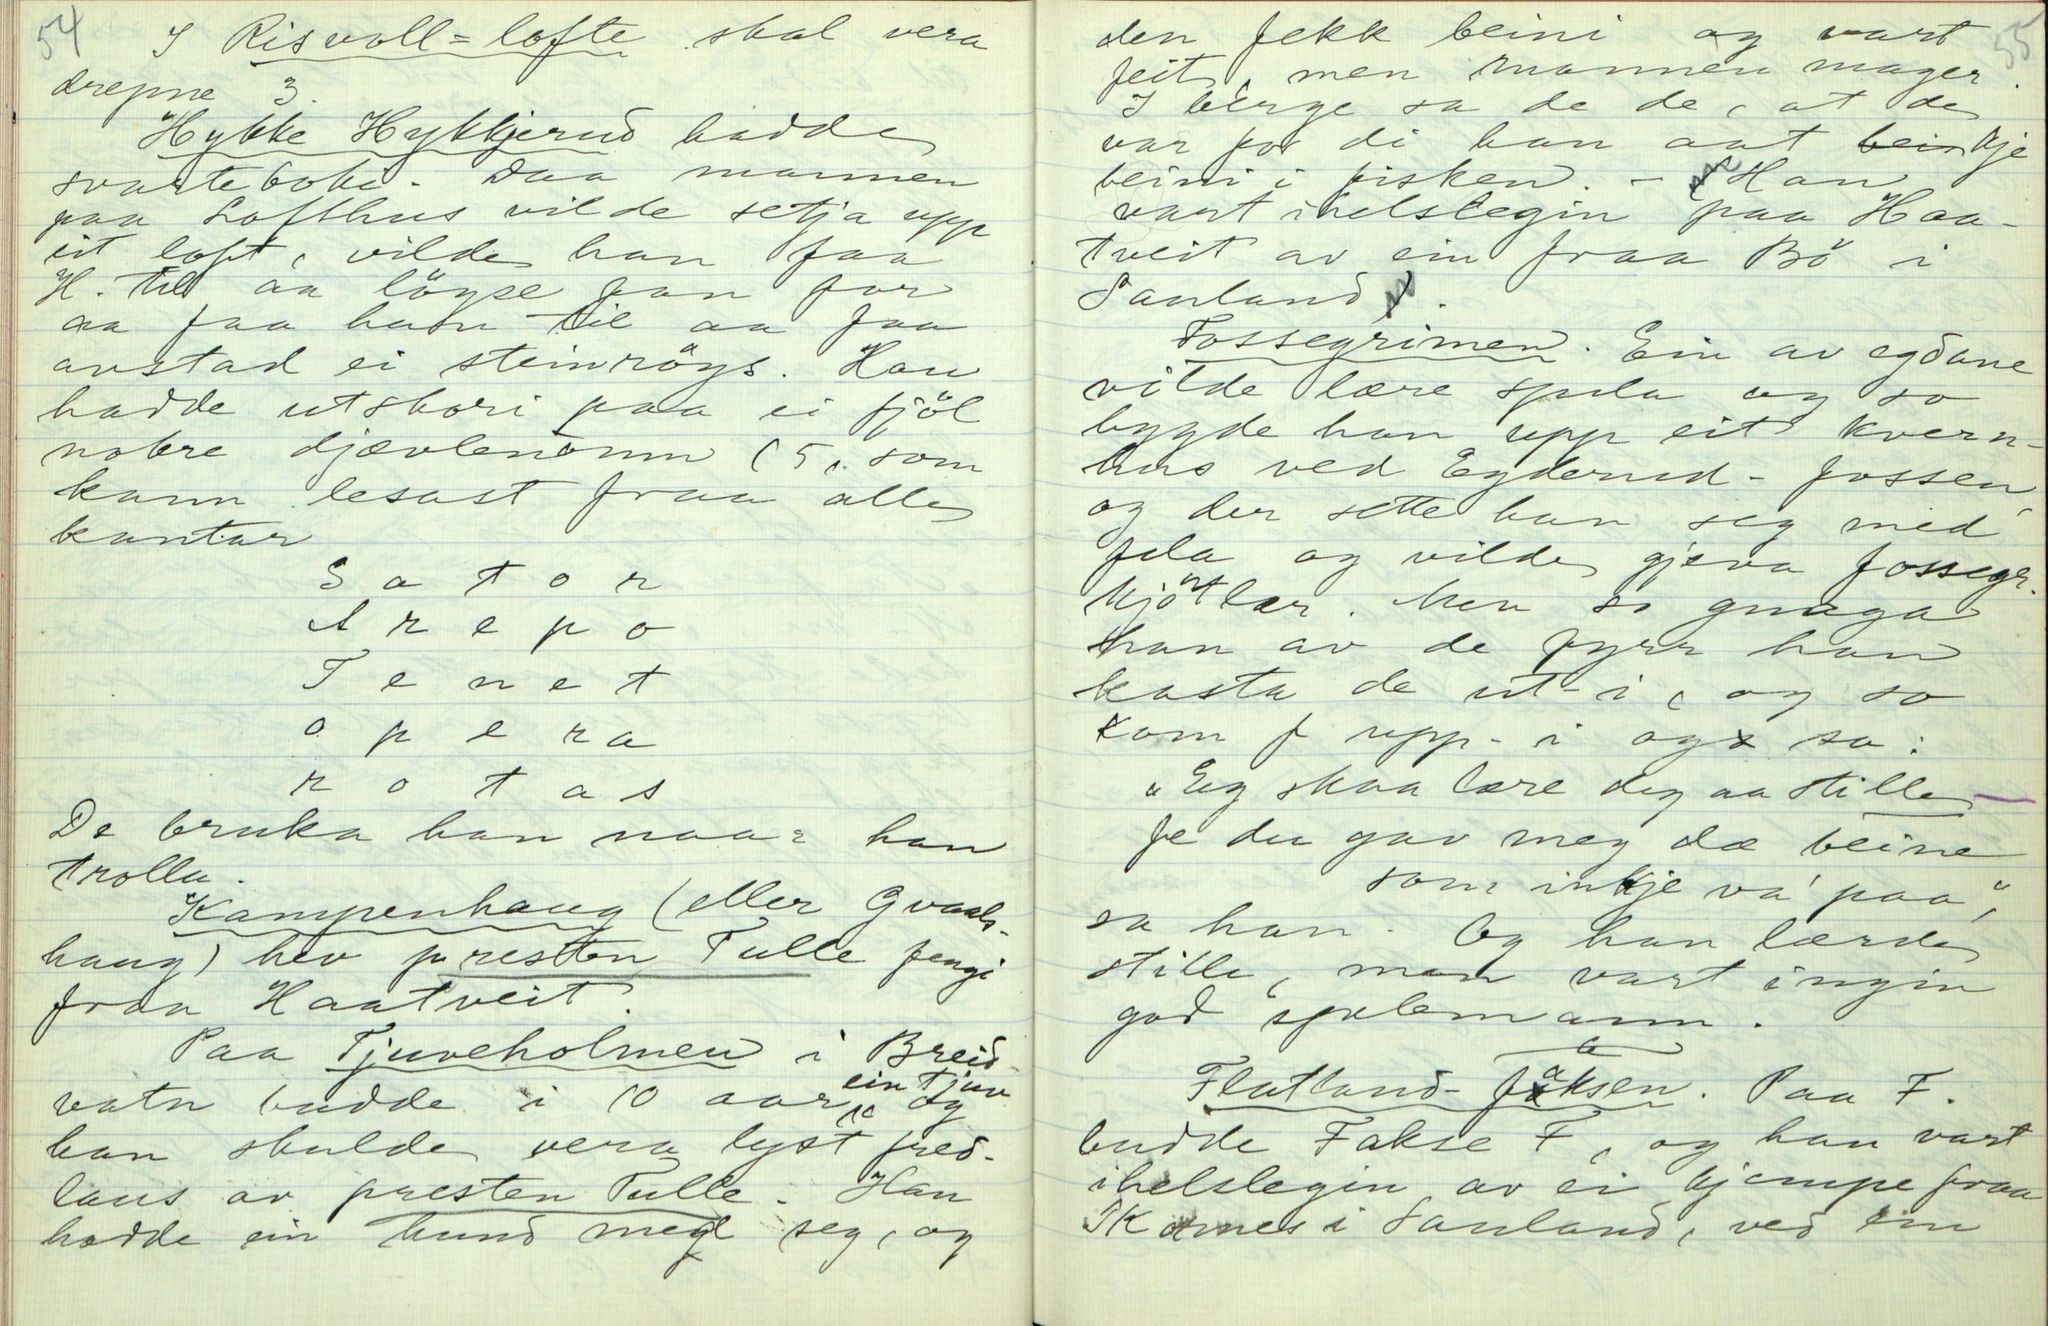 54
I Risvoll-lofte skal vera
drepne 3.
Hykke Hykkjerud hadde
svarteboki. Daa mannen
paa Lofthus vilde setja upp
eit loft, vilde han faa
H. til aa löyse fan for
aa faa han til aa faa
avstad ei steinröys. Han
hadde utskori paa ei fjöl
nokre djævlenomn (5, som
kann lesast fraa alle
kantar
S a t o r
A r e p o
T e n e t
o p e r a
r o t a s
De bruka han naar han
trolla.
Kampenhaug (eller Gvaals-
haug) hev presten Tulle fengi
fraa Haatveit.
Paa Tjuveholmen i Breid
vatn budde i 10 aar ein tjuv, og
han skulde vera lyst fred-
laus av presten Tulle. Han
hadde ein hund med seg, og
55
den fekk beini og vart
feit, men mannen mager.
I berge sa de de, at de
var for di han aat bein kje
beini i fisken. - Han
vart ihelslegin paa Haa-
tveit av ein fraa Bö i
Sauland.
Fossegrimen. Ein av egdane
vilde lære spela og so
bygde han upp eit kvern-
hus ved Egderud-fossen,
og der sette han seg med
fela og vilde gjeva fossegr.
kjötlær. Men so gnaga
han av de fyrr han
kasta de ut-i, og so
kom f upp-i og sa:
"Eg skaa lære deg aa stille
fe du gav meg dæ beine
som inkje va' paa",
sa han. Og han lærde
stille, men vart ingin
god spelemann.
Flatland-faksen. Paa F.
budde Fakse F, og han vart
ihelslegin av ei kjempe fraa
Skarnes i Sauland, ved ein